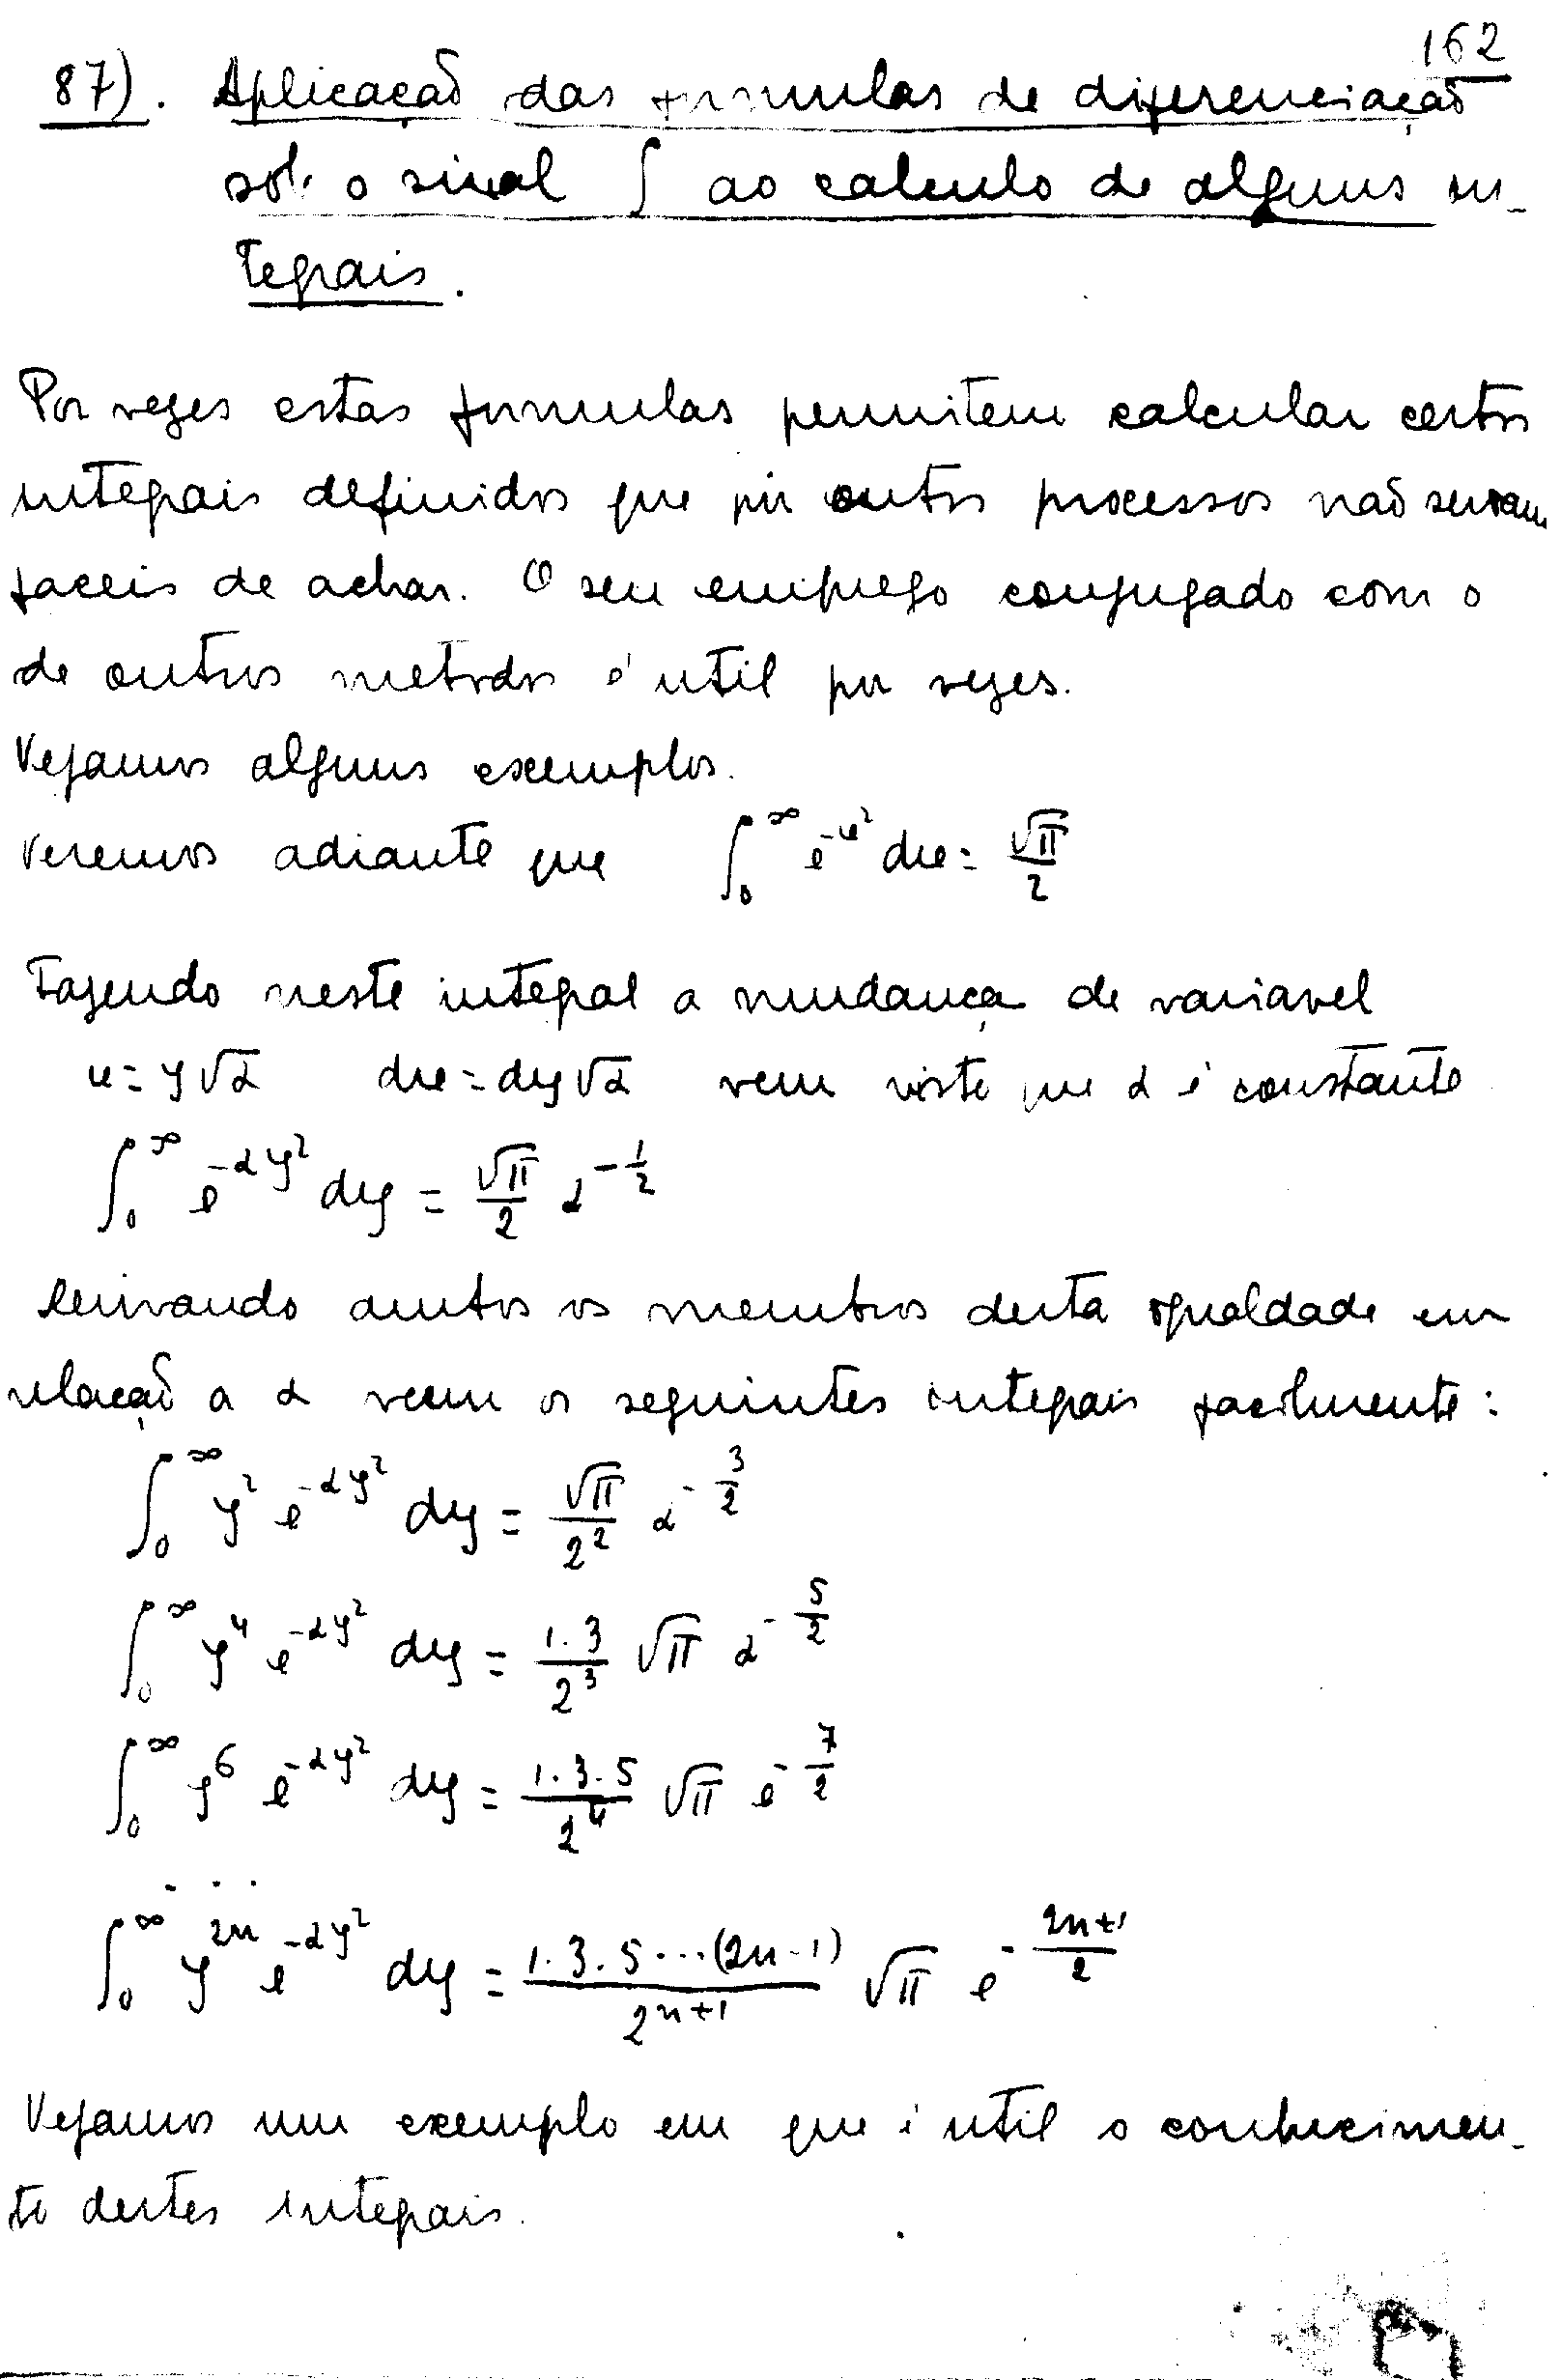 162
87). Aplicação das formulas de diferenciação
sob o sinal ∫ ao calculo de alguns in-
tegrais.
Por vezes estas formulas permitem calcular certos
integrais definidos que por outros processos não seriam
faceis de achar. O seu emprego conjugado com o
de outros metodos é util por vezes.
Vejamos alguns exemplos.
Veremos adiante que ∫₀^∞ e^{-u²} du = √π/2
Fazendo neste integral a mudança de variavel
u = y√α du = dy√α vem visto que α é constante
∫₀^∞ e^{-αy²} dy = √π/2 α^{-1/2}
Derivando ambos os membros desta igualdade em
relação a α veem os seguintes integrais facilmente:
∫₀^∞ y² e^{-αy²} dy = √π/2² α^{-3/2}
∫₀^∞ y⁴ e^{-αy²} dy = 1.3/2³ √π α^{-5/2}
∫₀^∞ y⁶ e^{-αy²} dy = 1.3.5/2⁴ √π e^{-7/2}
. . .
∫₀^∞ y^{2n} e^{-αy²} dy = 1.3.5...(2n-1)/2^{n+1} √π e^{-(2n+1)/2}
Vejamos um exemplo em que é util o conhecimen-
to destes integrais.